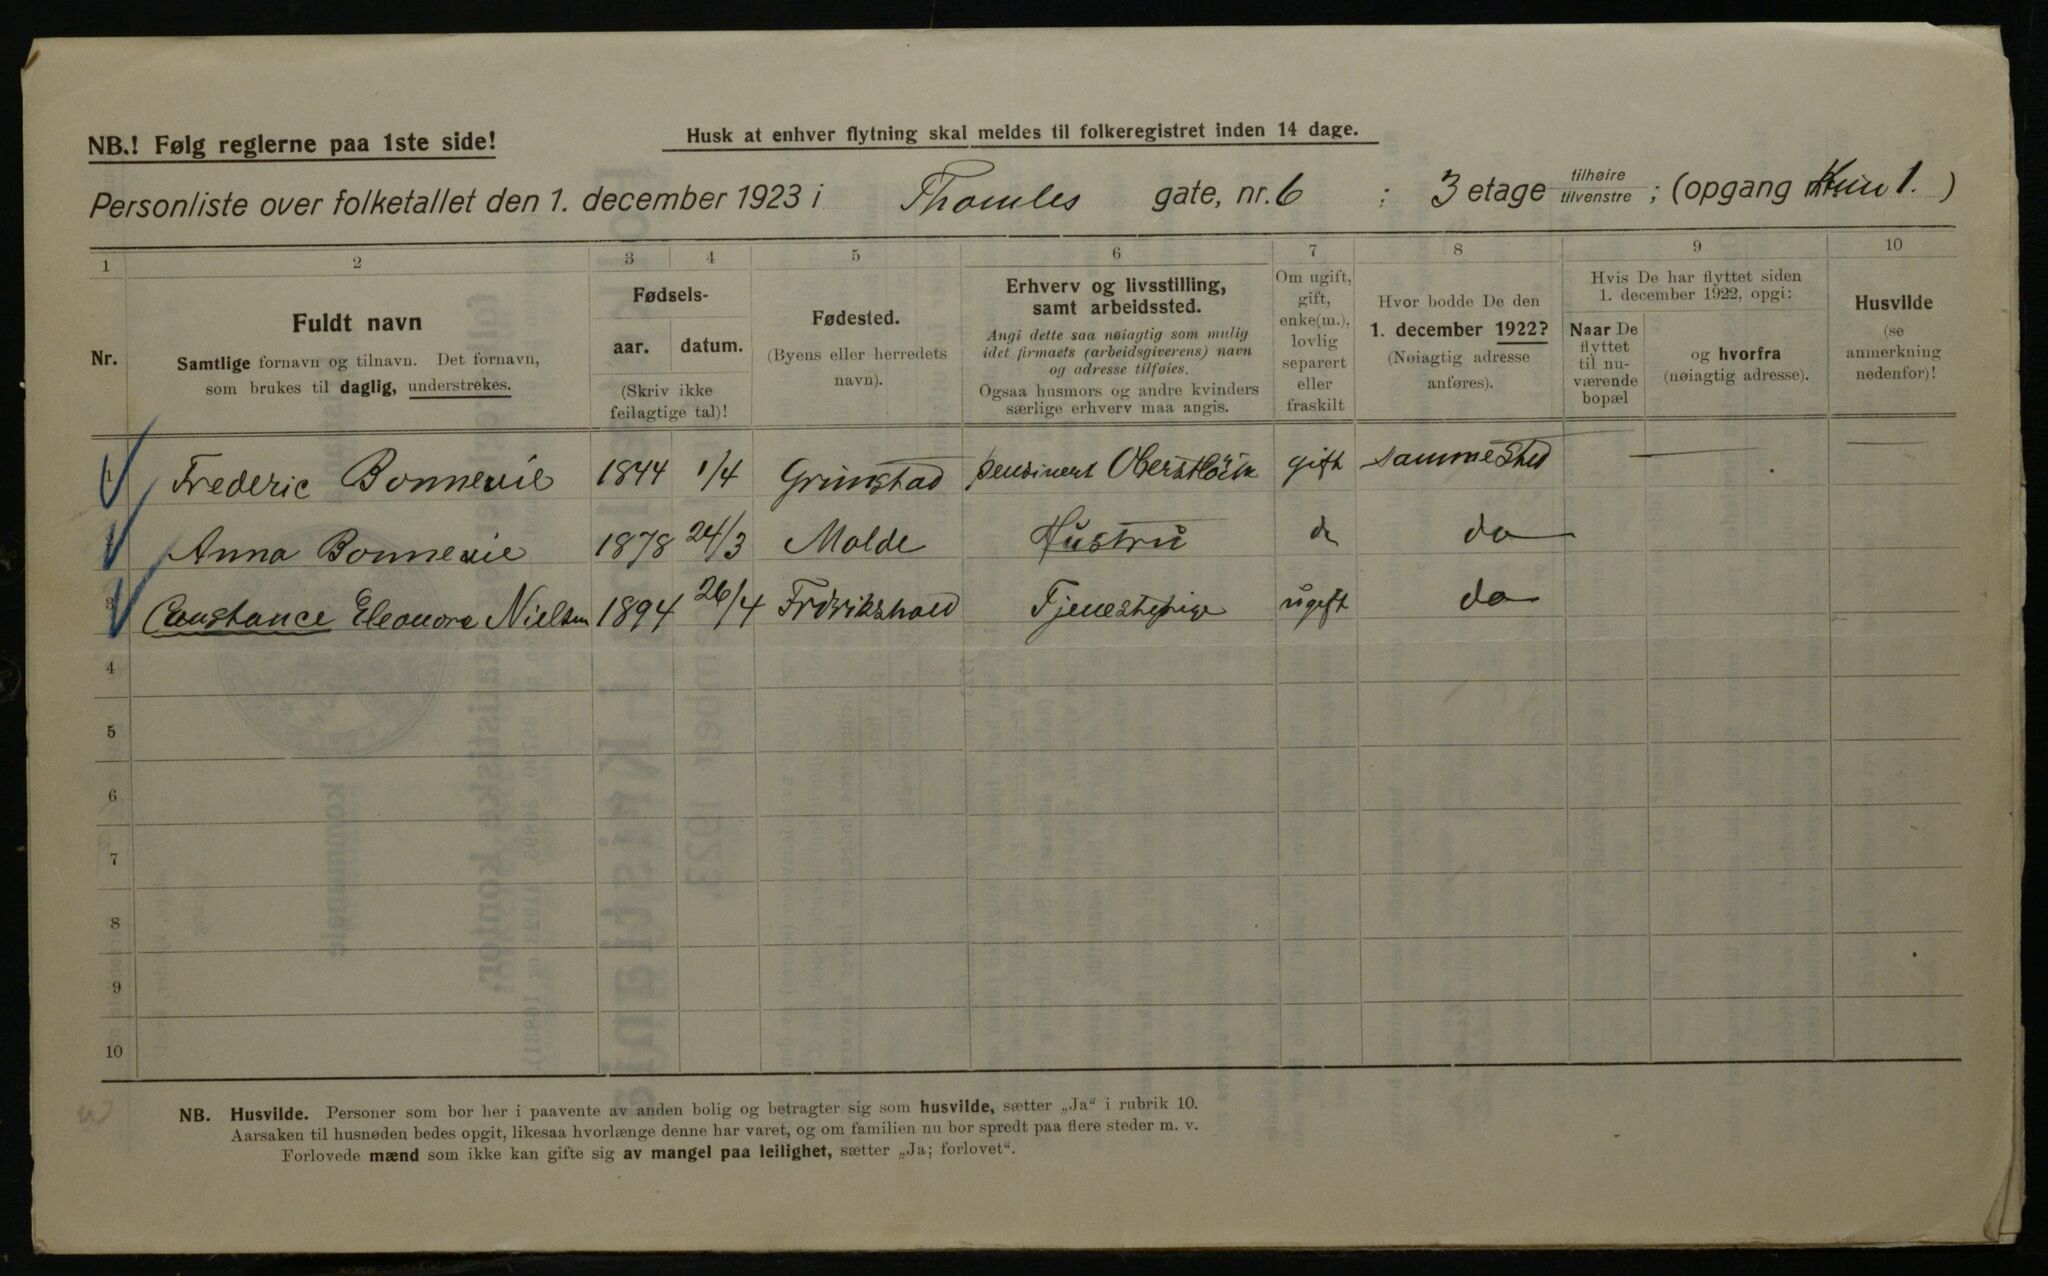 NB.! Følg reglerne paa 1ste side!
Husk at enhver flytning skal meldes til folkeregistret inden 14 dage.
Personliste over folketallet den 1. december 1923 i Thomles gate, nr. 6 ; 3 etage tilhøire tilvenstre ; (opgang Kun 1. )
1 2 3 4 5 6 7 8 9 10
Nr.
Fuldt navn
Samtlige fornavn og tilnavn. Det fornavn,
som brukes til daglig, understrekes.
Fødsels-
aar. datum.
(Skriv ikke
feilagtige tal)!
Fødested.
(Byens eller herredets
navn).
Erhverv og livsstilling,
samt arbeidssted.
Angi dette saa nøiagtig som mulig
idet firmaets (arbeidsgiverens) navn
og adresse tilføies.
Ogsaa husmors og andre kvinders
særlige erhverv maa angis.
Om ugift,
gift,
enke(m.),
lovlig
separert
eller
fraskilt
Hvor bodde De den
1. december 1922?
(Nøiagtig adresse
anføres).
Hvis De har flyttet siden
1. december 1922, opgi:
Naar De
flyttet
til nu-
værende
bopæl
og hvorfra
(nøiagtig adresse).
Husvilde
(se
anmerkning
nedenfor)!
1 Frederic Bonnevie 1844 1/4 Grimstad pensinert gift samme sted
2 Anna Bonnevie 1878 24/3 Molde Hustru do
3 Constance Eleonora Nielsen 1894 26/4 Fredrikshald Tjenestepige ugift do
4
5
6
7
8
9
10
NB. Husvilde. Personer som bor her i paavente av anden bolig og betragter sig som husvilde, sætter „Ja“ i rubrik 10.
Aarsaken til husnøden bedes opgit, likesaa hvorlænge denne har varet, og om familien nu bor spredt paa flere steder m. v.
Forlovede mænd som ikke kan gifte sig av mangel paa leilighet, sætter „Ja; forlovet“.